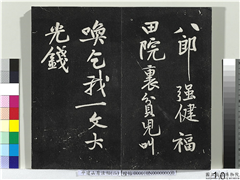 八郎强健福
田院裏貧兒叫
喚乞我一文大
光錢
10